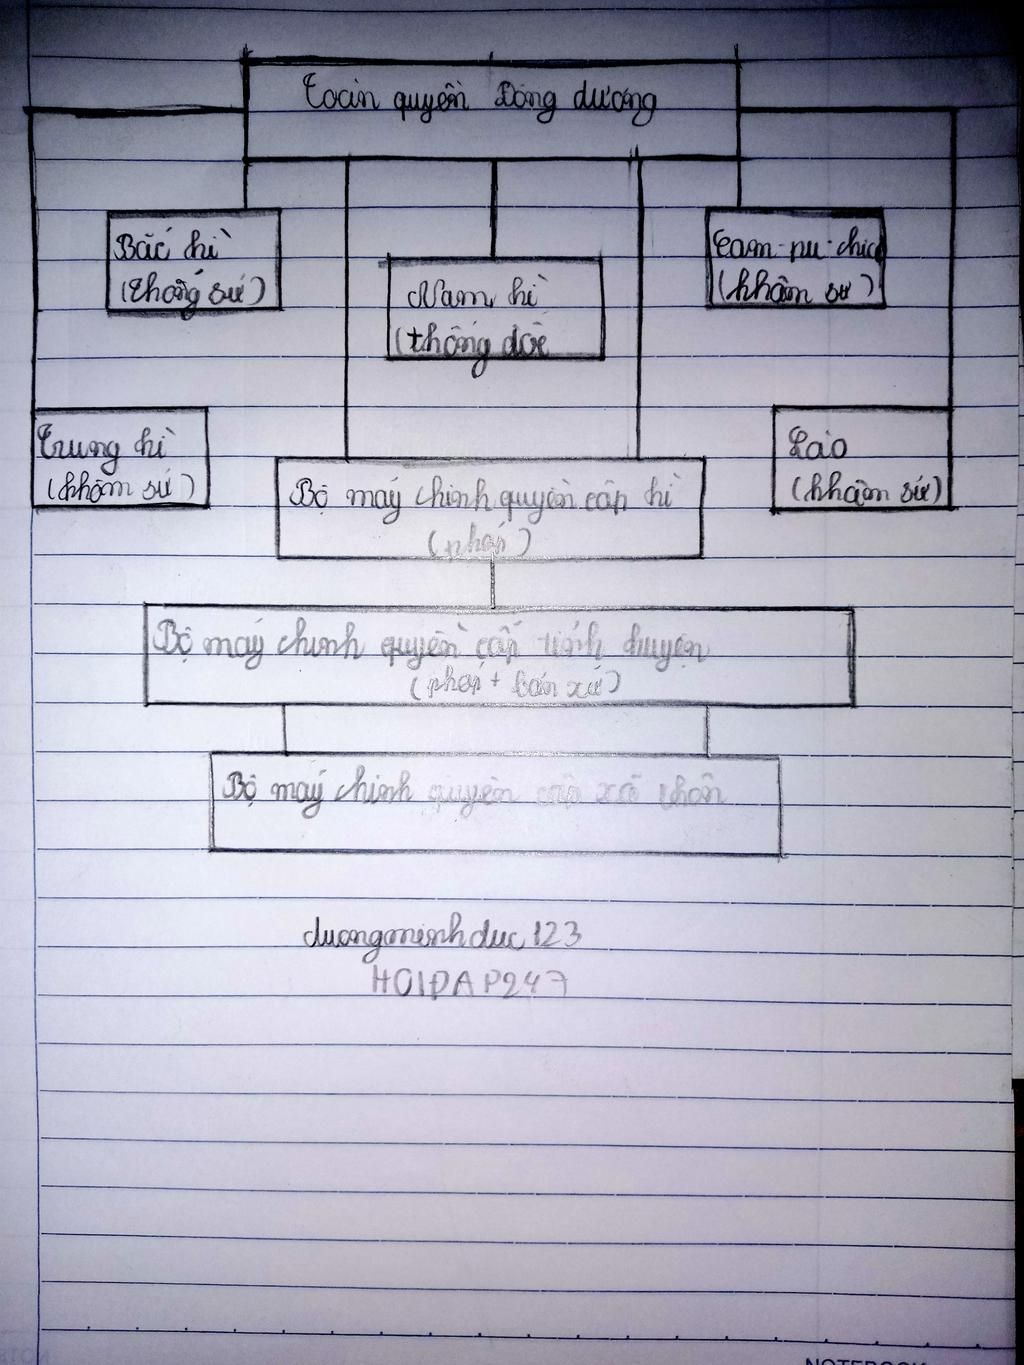 Toàn quyền Đông dương
Bắc kì
(thống sứ)
Nam kì
(thống dốc
Cam-pu-chia
(khâm sứ)
Trung kì
(khâm sứ)
Lào
(khâm sứ)
Bộ máy chính quyền cấp kì
(pháp)
Bộ máy chính quyền cấp tỉnh huyện
(pháp + bản xứ)
Bộ máy chính quyền cấp xã thôn
duongminhduc 123
HOIDAP247
NOTEBOOK